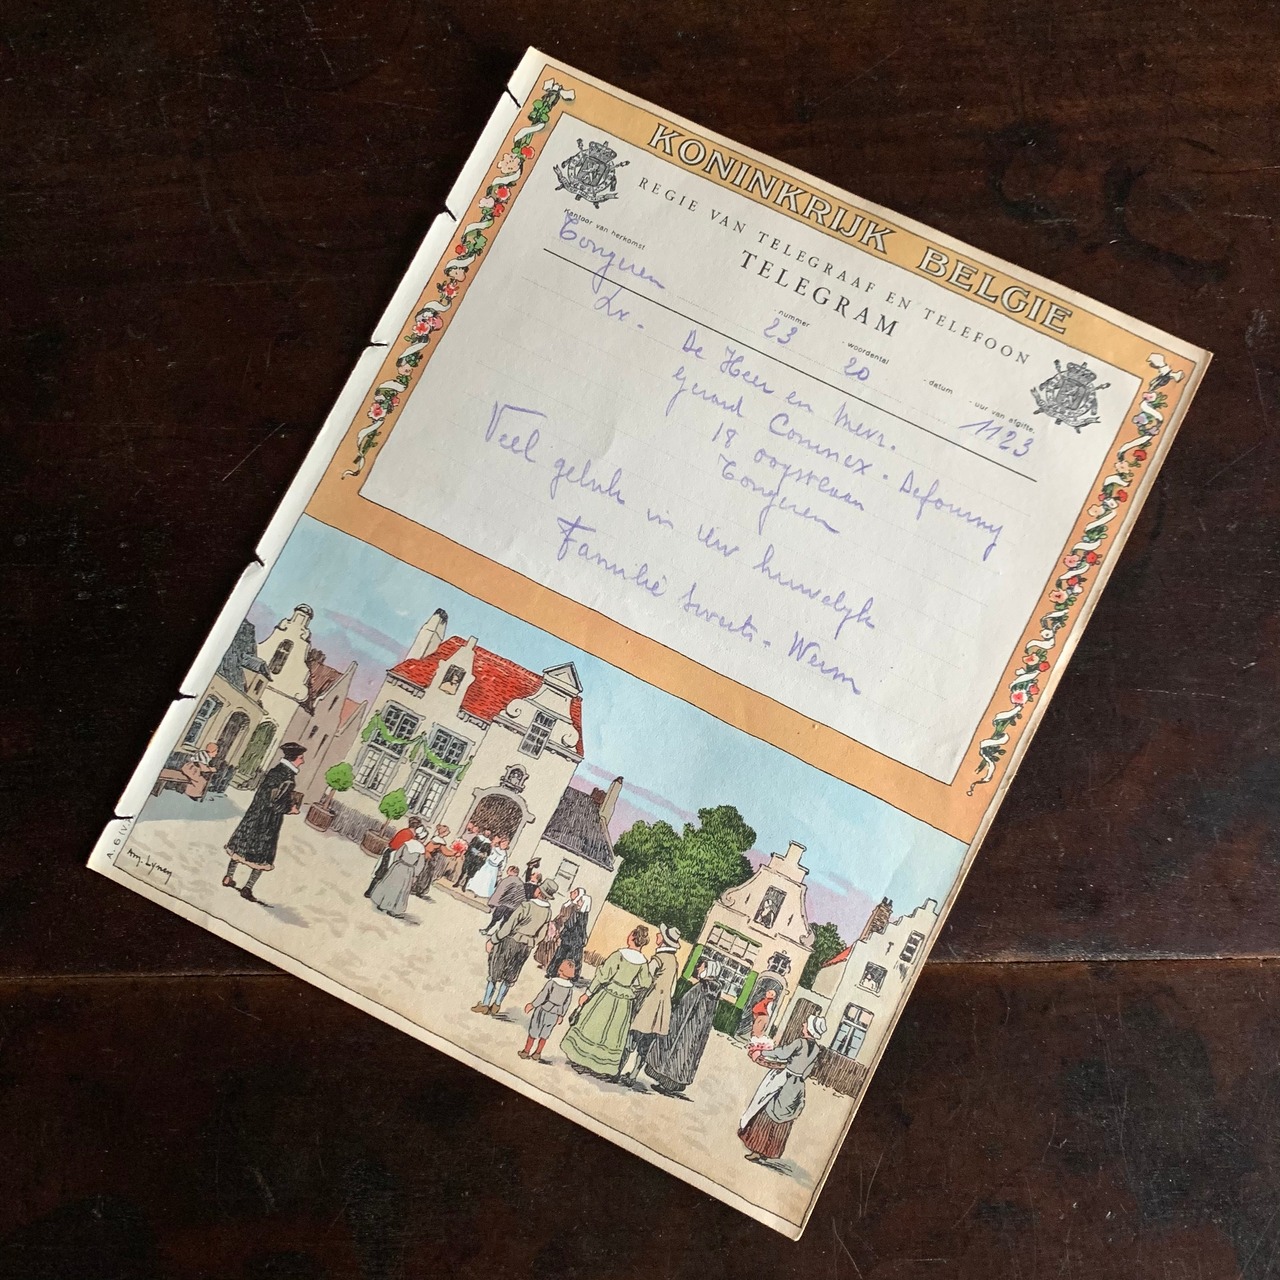 KONINKRIJK BELGIE
REGIE VAN TELEGRAAF EN TELEFOON
TELEGRAM
Kantoor van herkomst
Tongeren
nummer
23
woordental
20
datum
uur van afgifte.
1123
Lx.
De Heer en Mevr.
Gerard Coninx - Defourny
18 oogstlaan
Tongeren
Veel geluk in Uw huwelijk
Familie Sweerts - Werm
Am. Lynen
A. 6. (V.